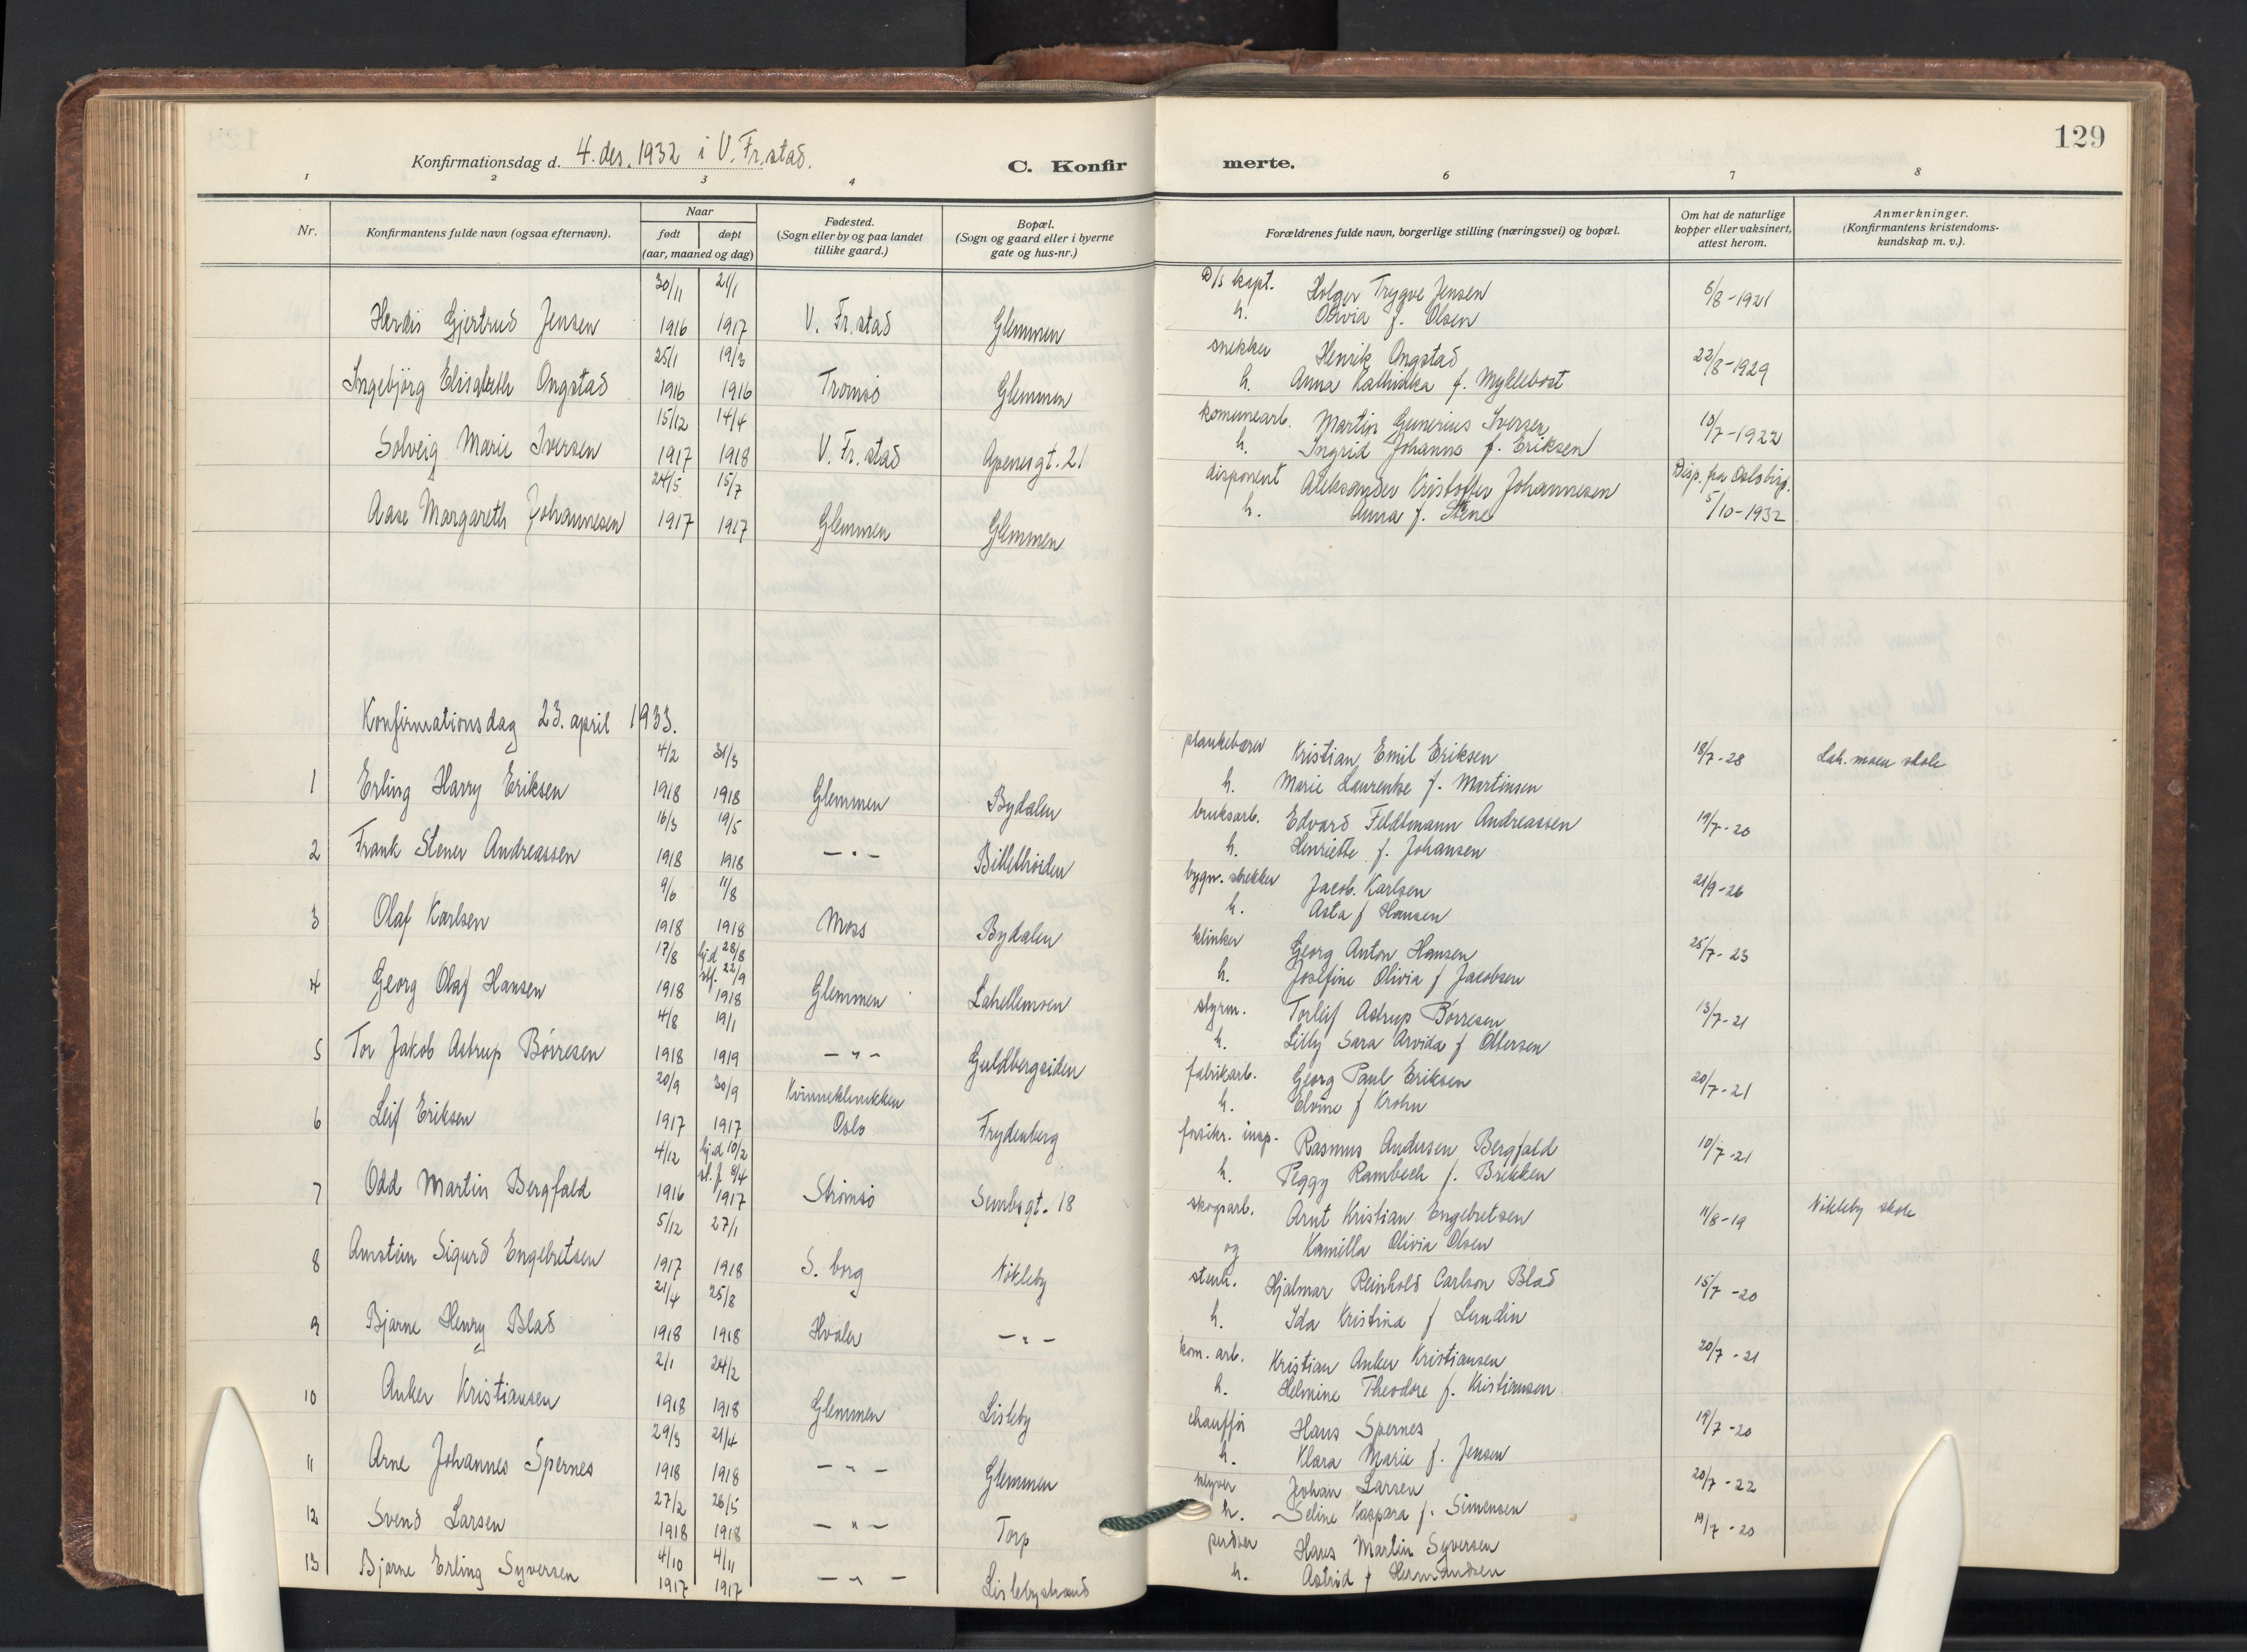 129
Konfirmationsdag d. 4. des. 1932 i V. Fr.stad.
C. Konfirmerte.
1 2 3 4 6 7 8
Nr.
Konfirmantens fulde navn (ogsaa efternavn).
Naar
født døpt
(aar, maaned og dag)
Fødested.
(Sogn eller by og paa landet
tillike gaard.)
Bopæl.
(Sogn og gaard eller i byerne
gate og hus-nr.)
Forældrenes fulde navn, borgerlige stilling (næringsvei) og bopæl.
Om hat de naturlige
kopper eller vaksinert,
attest herom.
Anmerkninger.
(Konfirmantens kristendoms-
kundskap m. v.).
30/11 21/1 D/s kapt. Holger Trygve Jensen 6/8-1921
Herdis Gjertrud Jensen 1916 1917 V. Fr.stad Glemmen h. Olivia f. Olsen
25/1 19/3 snekker Henrik Ongstad 22/8-1929
Ingebjörg Elisabeth Ongstad 1916 1916 Tromsö Glemmen h. Anna Kathinka f. Myklebost
15/12 14/4 komunearb. Martin Gunerius Iversen 10/7-1922
Solveig Marie Iversen 1917 1918 V. Fr.stad Apenesgt. 21 h. Ingrid Johanne f. Eriksen
24/5 15/7 disponent Aleksander Kristoffer Johannesen Disp. fra Oslo bisp.
Aase Margareth Johannesen 1917 1917 Glemmen Glemmen h. Anna f. Stene 5/10-1932
Konfirmationsdag 23. april 1933.
4/2 31/3 plankebærer Kristian Emil Eriksen 18/7-28 Lah.moen skole
1 Erling Harry Eriksen 1918 1918 Glemmen Bydalen h. Marie Laurentse f. Martinsen
16/3 19/5 bruksarb. Edvard Feldtmann Andreassen 19/7-20
2 Frank Stener Andreassen 1918 1918 — " — h. Henriette f. Johansen
9/6 11/8 bygn. snekker Jacob Karlsen 21/9-26
3 Olaf Karlsen 1918 1918 Moss Bydalen h. Asta f Hansen
17/8 hj.d 28/8 klinker Georg Anton Hansen 25/7-23
stf. 22/9
4 Georg Olaf Hansen 1918 1918 Glemmen Lahellemoen h. Josefine Olivia f Jacobsen
4/8 19/1 styrm. Torleif Astrup Börresen 13/7-21
5 Tor Jakob Astrup Börresen 1918 1919 — " — Guldbergsiden h. Lilly Sara Arvida f Ottersen
20/9 30/9 Kvinneklinikken fabrikarb. Georg Paul Eriksen 20/7-21
6 Leif Eriksen 1917 1917 Oslo Frydenberg h. Elvine f Krohn
4/12 hj.d 10/2 forsikr. insp. Rasmus Andersen Bergfald 10/7-21
st. f. 8/4
7 Odd Martin Bergfald 1916 1917 Strömsö Sembsgt. 18 h. Peggy Rambech f. Brekken
5/12 27/1 skogsarb. Arnt Kristian Engebretsen 11/8-19 Nökleby skole
8 Arnstein Sigurd Engebretsen 1917 1918 S. borg Nökleby og Kamilla Olivia Olsen
21/4 25/8 stenh. Hjalmar Reinhold Carlson Blad 15/7-20
9 Bjarne Henry Blad 1918 1918 Hvaler — " — h. Ida Kristina f Lundin
2/1 24/2 kom. arb. Kristian Anker Kristiansen 20/7-21
10 Anker Kristiansen 1918 1918 Glemmen Lisleby h. Helmine Theodore f. Kristiansen
29/3 21/4 chaufför Hans Spernes 19/7-20
11 Arne Johannes Spernes 1918 1918 — " — Glemmen h. Klara Marie f. Jensen
27/2 26/5 Johan Larsen 20/7-22
12 Svend Larsen 1918 1918 — " — Torp h. Seline Kaspara f. Simensen
4/10 4/11 Hans Martin Syversen 19/7-20
13 Bjarne Erling Syversen 1917 1917 — " — Lislebystrand h. Astrid f Hermandsen